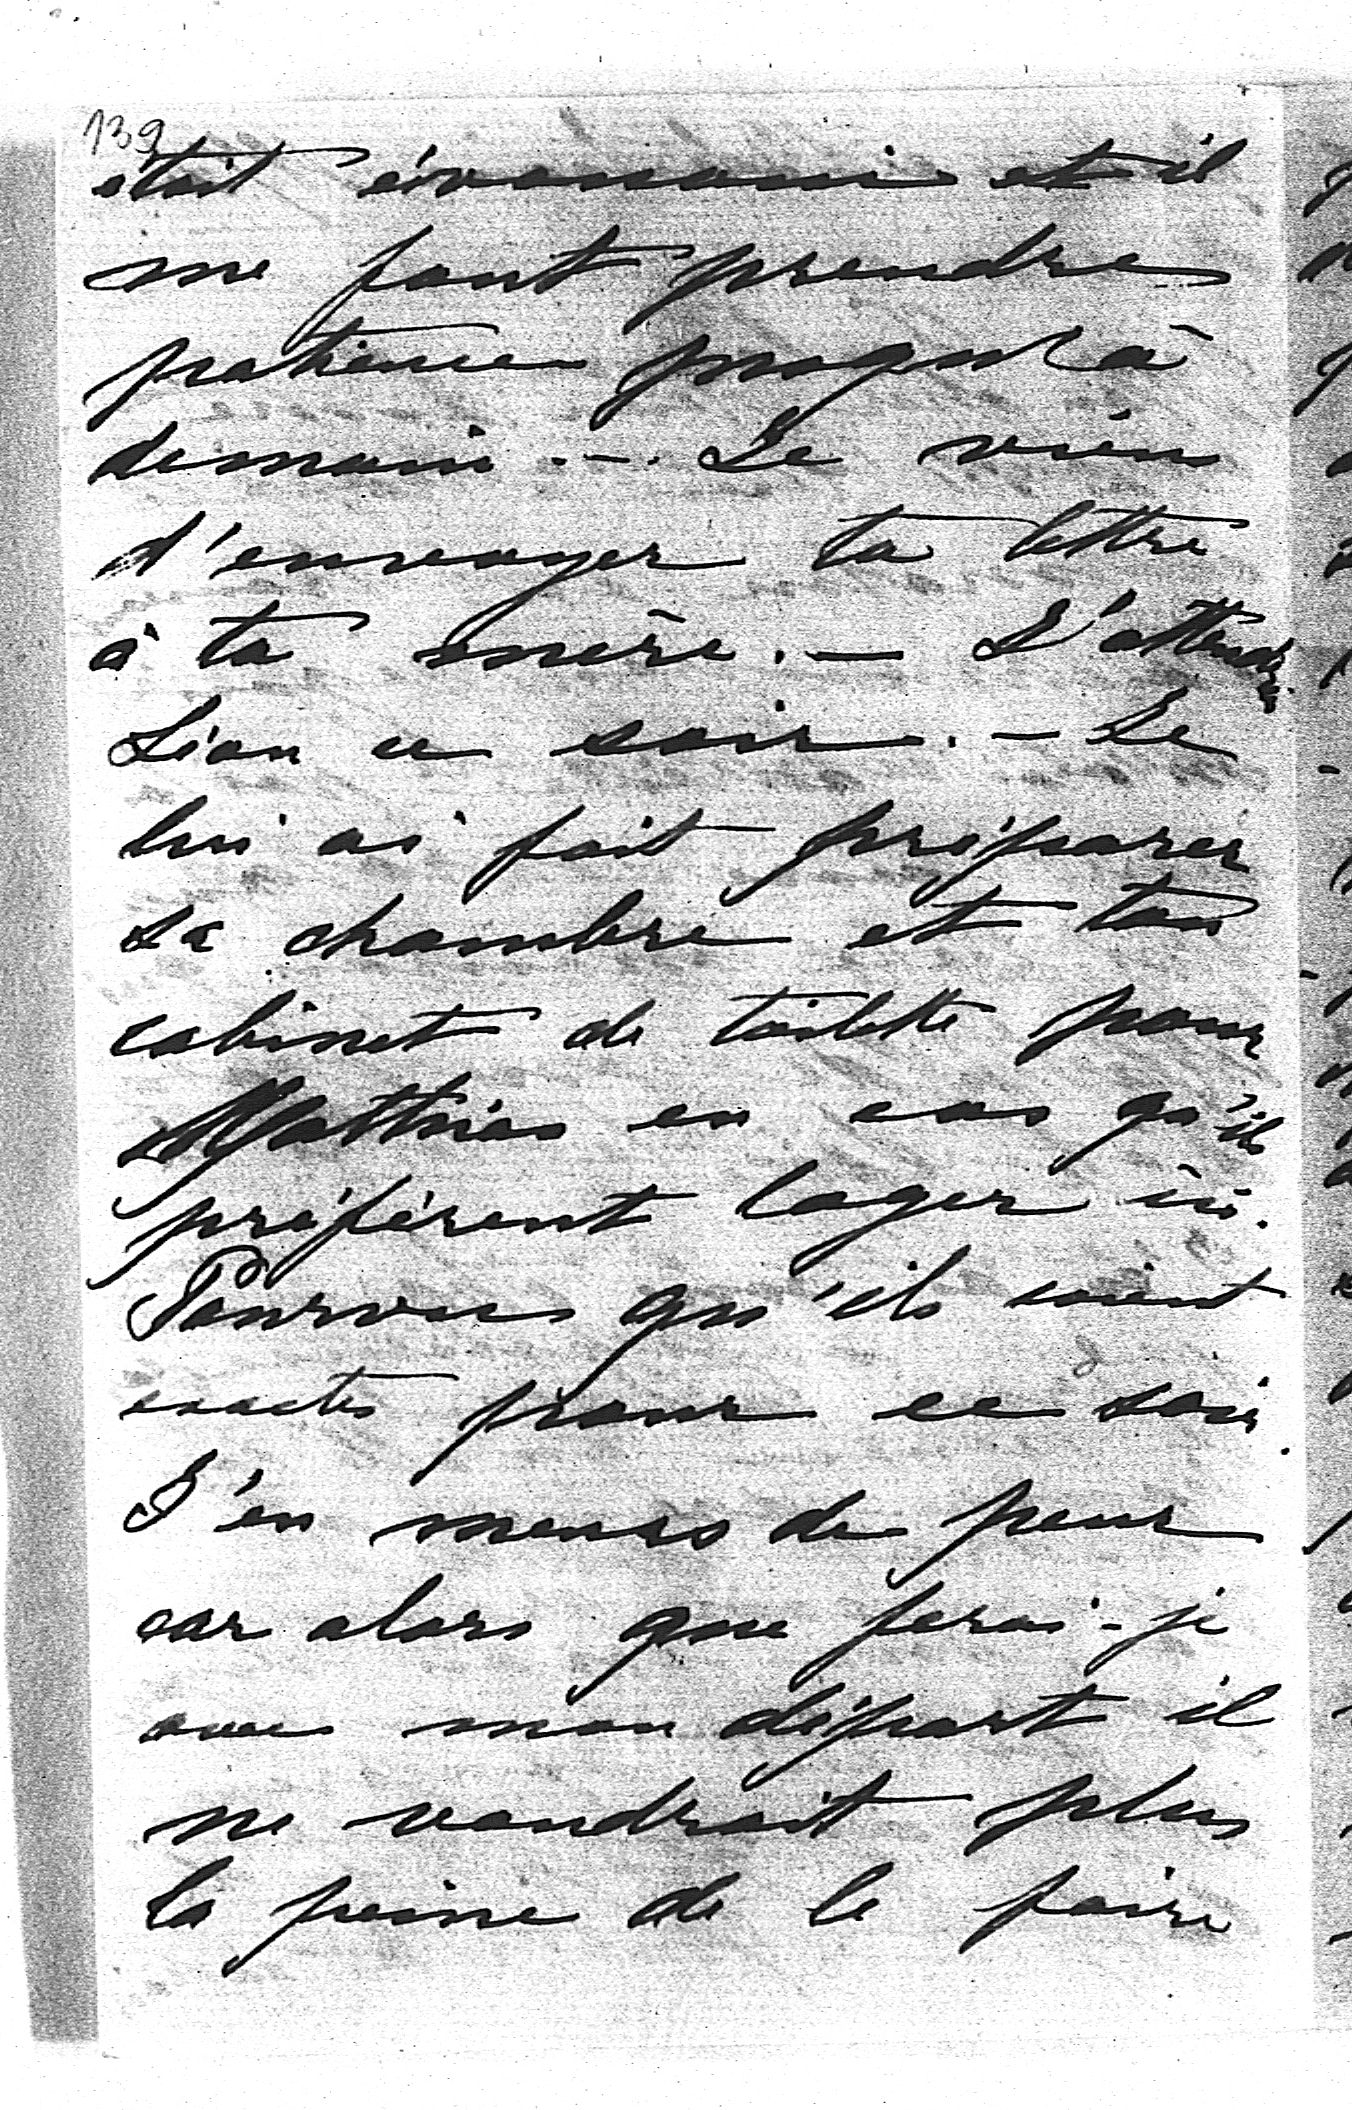 139
était évanoui et il
me faut prendre
patience jusqu'à
demain. — Je viens
d'envoyer ta lettre
à ta mère. — J'attends
Léon ce soir. — Je
lui ai fait préparer
sa chambre et ton
cabinet de toilette pour
Mathieu en cas qu'ils
préfèrent loger ici.
Pourvu qu'ils soient
exacts pour ce soir.
J'en meurs de peur
car alors que ferai-je
avec mon départ il
ne vaudrait plus
la peine de le faire